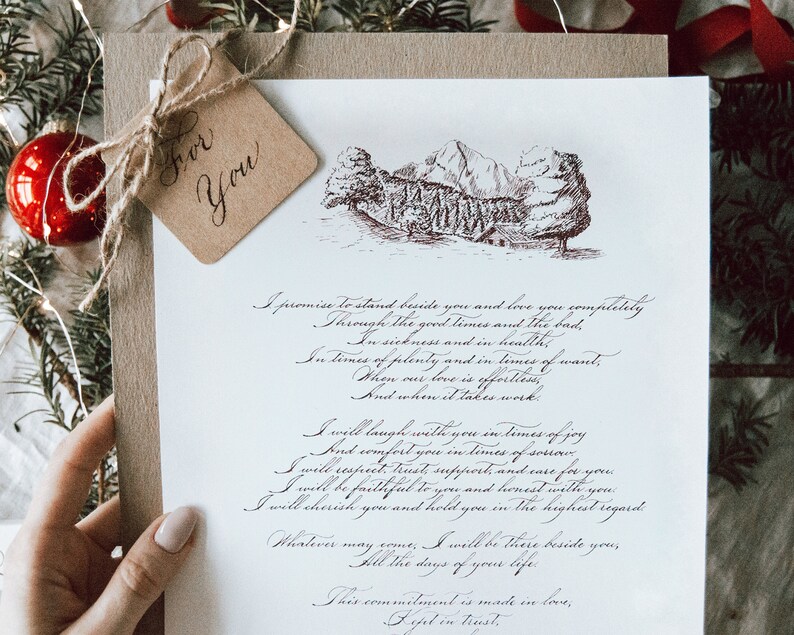 For
You
I promise to stand beside you and love you completely
Through the good times and the bad,
In sickness and in health,
In times of plenty and in times of want,
When our love is effortless,
And when it takes work.
I will laugh with you in times of joy
And comfort you in times of sorrow.
I will respect, trust, support, and care for you.
I will be faithful to you and honest with you.
I will cherish you and hold you in the highest regard.
Whatever may come, I will be there beside you,
All the days of your life.
This commitment is made in love,
Kept in trust,